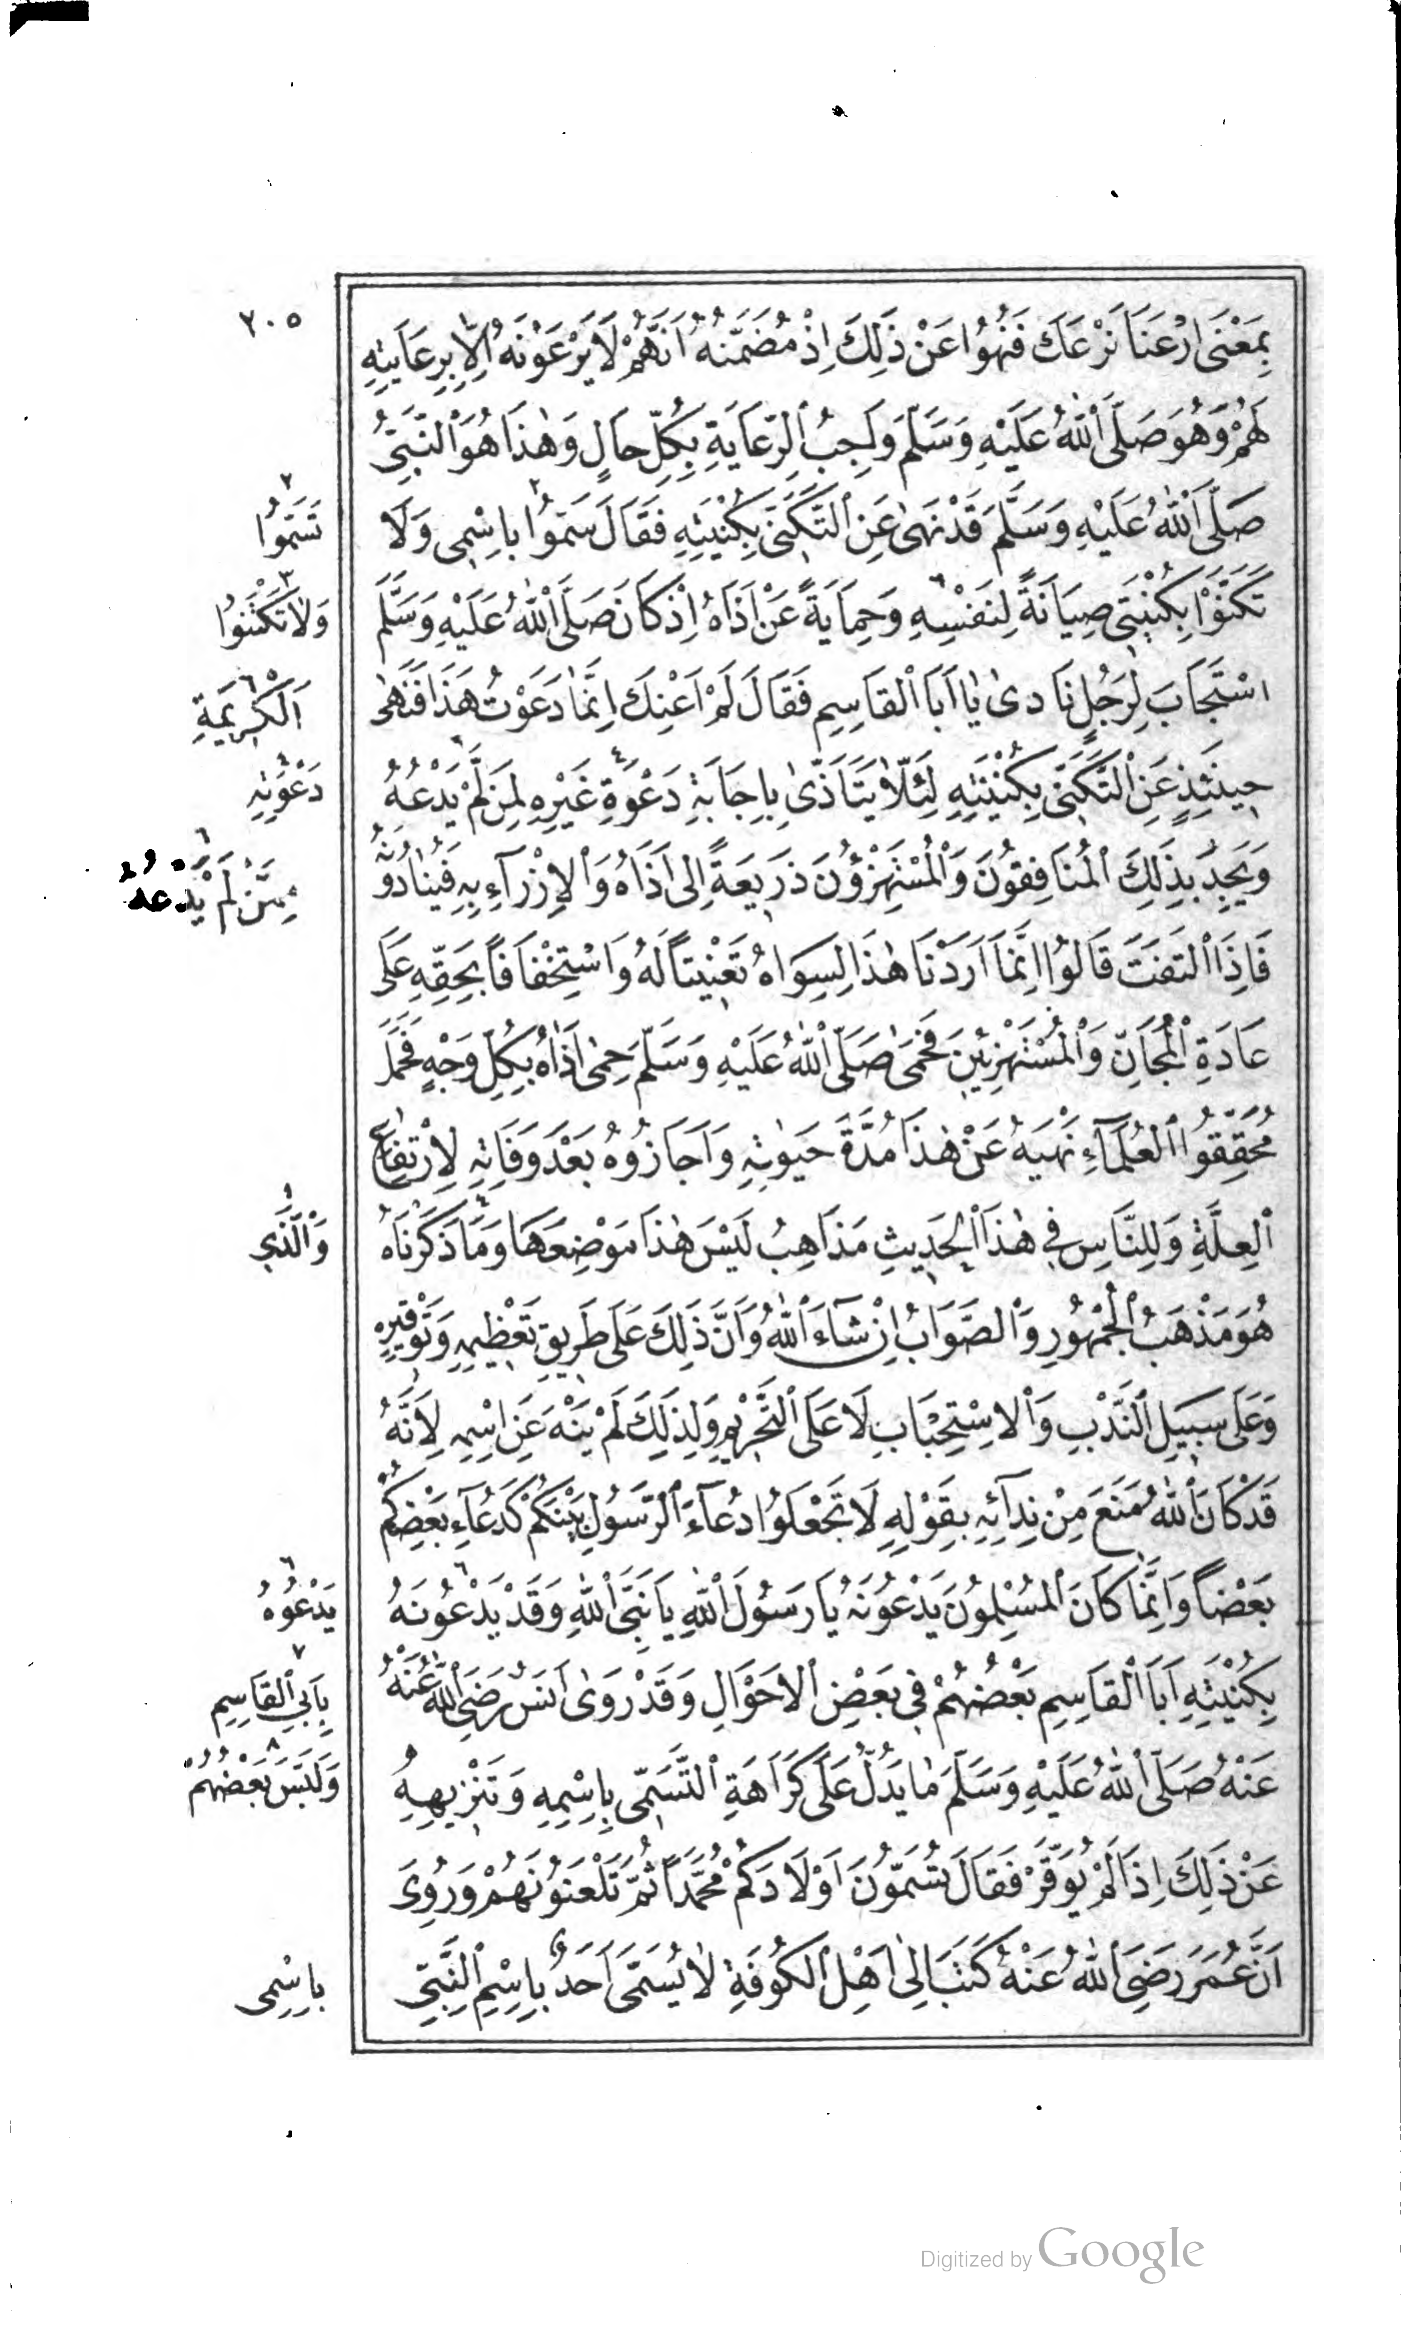 ٢٠٥
بِمَعْنَى ارْعَنَا نَرْعَكَ فَنُهُوا عَنْ ذَلِكَ اِذْ مُضَمَّنُهُ اَنَّهُمْ لَا يَرْعَوْنَهُ اِلَّا بِرِعَايَتِهِ
لَهُمْ وَهُوَ صَلَّى اللهُ عَلَيْهِ وَسَلَّمَ وَاجِبُ الرِّعَايَةِ بِكُلِّ حَالٍ وَهٰذَا هُوَ النَّبِيُّ
صَلَّى اللهُ عَلَيْهِ وَسَلَّمَ قَدْ نَهٰى عَنِ التَّكَنِّى بِكُنْيَتِهِ فَقَالَ سَمُّوا ٢ بِاسْمِى وَلَا
تَكَنَّوْا بِكُنْيَتِى صِيَانَةً لِنَفْسِهِ ٦ وَحِمَايَةً عَنْ اَذَاهُ اِذْ كَانَ صَلَّى اللهُ عَلَيْهِ وَسَلَّمَ
اسْتَجَابَ لِرَجُلٍ نَادٰى يَا اَبَا الْقَاسِمِ فَقَالَ لَمْ اَعْنِكَ اِنَّمَا دَعَوْتُ هَذَا فَنَهٰى
حِينَئِذٍ عَنِ التَّكَنِّى بِكُنْيَتِهِ لِئَلَّا يَتَاَذّٰى بِاِجَابَةِ دَعْوَةِ ٤ غَيْرِهِ لِمَنْ لَمْ يَدْعُهُ ٦
وَيَجِدُ بِذَلِكَ الْمُنَافِقُونَ وَالْمُسْتَهْزِؤُنَ ذَرِيعَةً اِلَى اَذَاهُ وَالْاِزْرَآءِ بِهِ فَيُنَادُونَهُ
فَاِذَا الْتَفَتَ قَالُوا اِنَّمَا اَرَدْنَا هٰذَا لِسِوَاهُ تَعْنِيتًا لَهُ وَاسْتِخْفَافًا بِحَقِّهِ عَلَى
عَادَةِ الْمُجَّانِ وَالْمُسْتَهْزِئِينَ فَحَمٰى صَلَّى اللهُ عَلَيْهِ وَسَلَّمَ حِمٰى اَذَاهُ بِكُلِّ وَجْهٍ فَحَمَلَ
مُحَقِّقُوا الْعُلَمَآءِ نَهْيَهُ عَنْ هٰذَا مُدَّةَ حَيٰوتِهِ وَاَجَازُوهُ بَعْدَ وَفَاتِهِ لِارْتِفَاعِ
الْعِلَّةِ وَلِلنَّاسِ فِى هٰذَا الْحَدِيثِ مَذَاهِبُ لَيْسَ هٰذَا مَوْضِعَهَا وَمَا ذَكَرْنَاهُ
هُوَ مَذْهَبُ الْجُمْهُورِ وَالصَّوَابُ اِنْ شَآءَ اللهُ وَاَنَّ ذَلِكَ عَلَى طَرِيقِ تَعْظِيمِهِ وَتَوْقِيرِهِ
وَعَلَى سَبِيلِ النَّدْبِ وَالاسْتِحْبَابِ لَا عَلَى التَّحْرِيمِ وَلِذَلِكَ لَمْ يَنْهَ عَنِ اسْمِهِ لِاَنَّهُ
قَدْ كَانَ اللهُ مَنَعَ مِنْ نِدَآئِهِ بِقَوْلِهِ لَا تَجْعَلُوا دُعَآءَ الرَّسُولِ بَيْنَكُمْ كَدُعَآءِ بَعْضِكُمْ
بَعْضًا وَاِنَّمَا كَانَ الْمُسْلِمُونَ يَدْعُونَهُ ٦ يَا رَسُولَ اللهِ يَا نَبِىَّ اللهِ وَقَدْ يَدْعُونَهُ
بِكُنْيَتِهِ اَبَا الْقَاسِمِ بَعْضُهُمْ فِى بَعْضِ الْاَحْوَالِ وَقَدْ رَوٰى اَنَسٌ رَضِىَ اللهُ عَنْهُ
عَنْهُ صَلَّى اللهُ عَلَيْهِ وَسَلَّمَ مَا يَدُلُّ عَلَى كَرَاهَةِ التَّسَمِّى بِاسْمِهِ وَتَنْزِيهِهِ
عَنْ ذَلِكَ اِذَا لَمْ يُوَقَّرْ فَقَالَ تُسَمُّونَ اَوْلَادَكُمْ مُحَمَّدًا ثُمَّ تَلْعَنُونَهُمْ وَرُوِىَ
اَنَّ عُمَرَ رَضِىَ اللهُ عَنْهُ كَتَبَ اِلٰى اَهْلِ الْكُوفَةِ لَا يُسَمَّى اَحَدٌ بِاسْمِ النَّبِىِّ
٢ تَسَمَّوْا
٣ وَلَا تَكْتَنُوا
٦ الْكَرِيمَةِ
دَعْوَتِهِ
٦ مِمَّنْ لَمْ يَدْعُهُ
وَالَّذِى
٦ يَدْعُوهُ
٧ بِاَبِى الْقَاسِمِ
٨ وَلَيْسَ بَعْضُهُمْ
بِاسْمِى
Digitized by Google